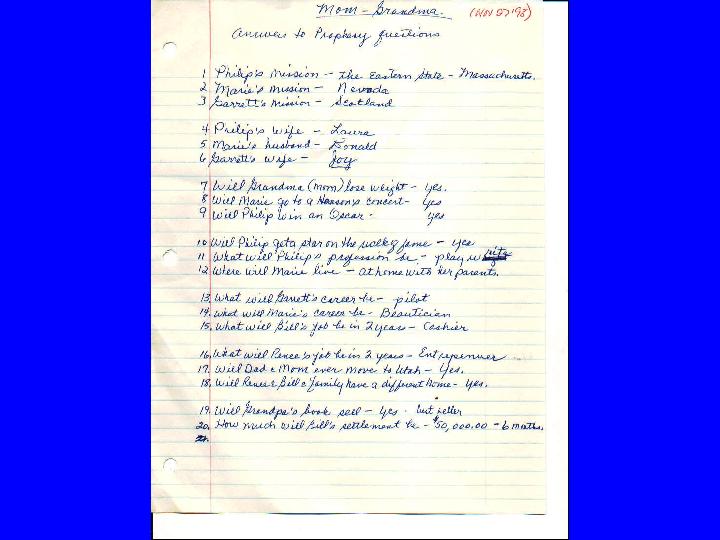 Mom - Grandma. (NOV 27 '98)
Answers to Prophasy questions
1 Philip's Mission -- the Eastern State - Massachusetts.
2 Marie's Mission - Nevada
3 Garrett's Mission - Scotland
4 Philip's Wife - Laura
5 Marie's husband - Ronald
6 Garrett's wife - Joy
7 Will Grandma (Mom) lose weight - yes.
8 Will Marie go to a Hanson's concert - yes
9 Will Philip win an Oscar - yes
10 Will Philip get a star on the walk of fame - yes
11 What will Philip's profession be - play write
12. Where will Marie live - at home with her parents.
13. What will Garrett's career be - pilot
14. What will Marie's career be - Beautician
15. What will Bill's job be in 2 years - Cashier
16. What will Renee's job be in 2 years - Entrepenuer
17. Will Dad & Mom ever move to Utah - yes.
18. Will Renee & Bill & family have a different home - yes.
19. Will Grandpa's book sell - yes - best seller
20. How much will Bill's settlement be - $50,000.00 - 6 months.